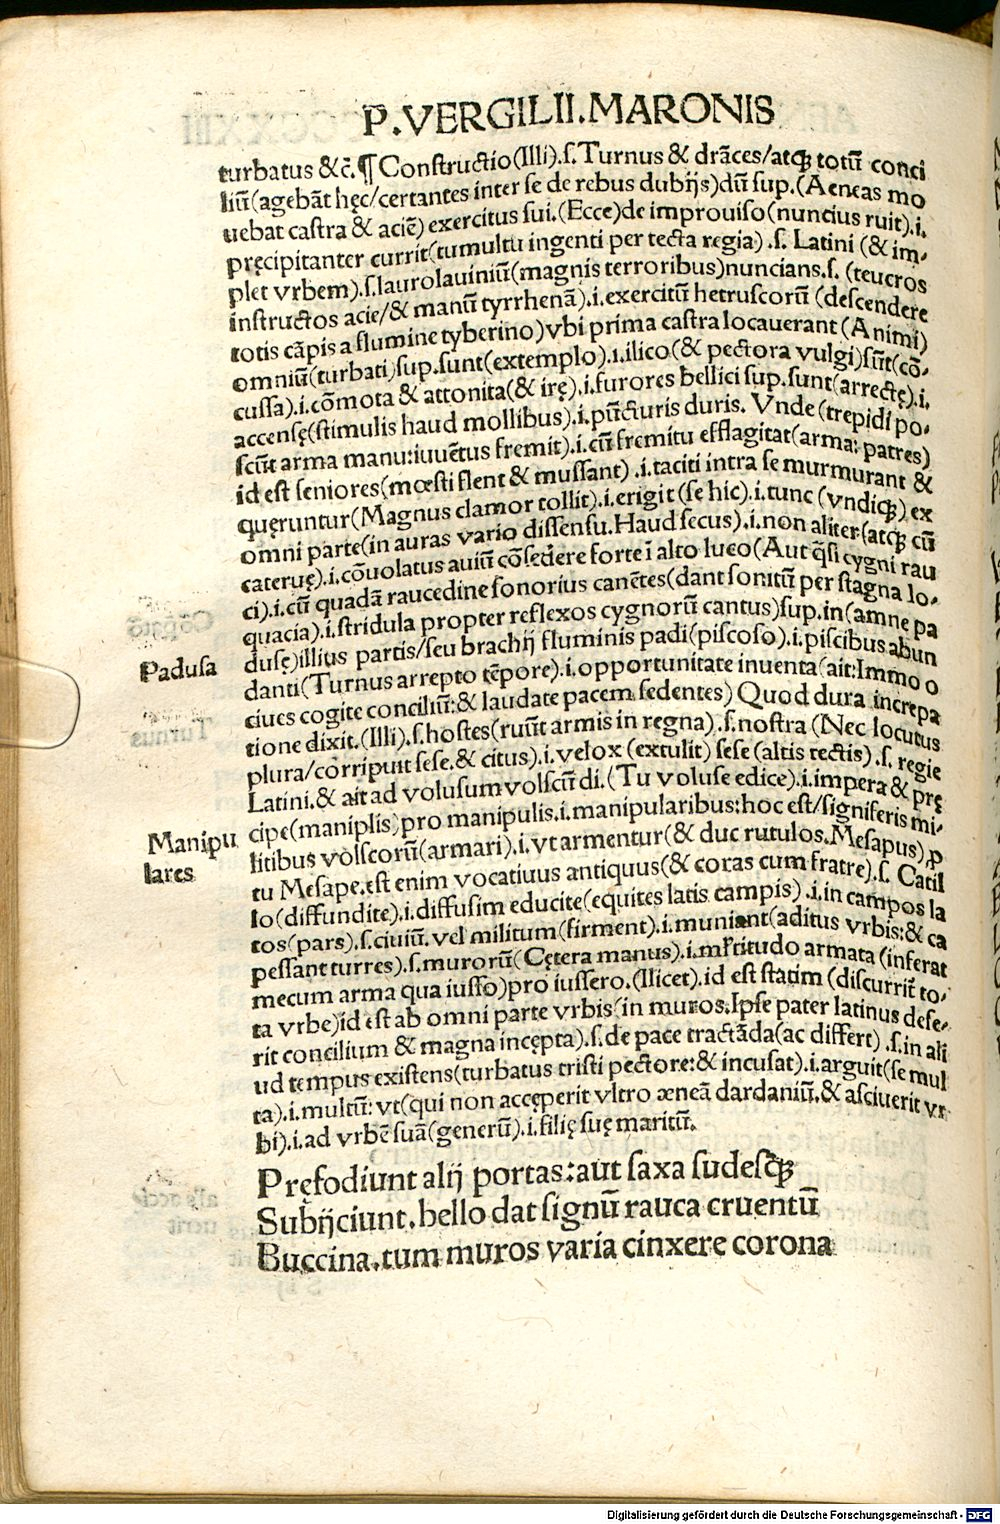 P.VERGILII.MARONIS
turbatus &c̄.¶ Constructio(Illi).ſ.Turnus & drāces/atqꝫ totū conci
liū(agebāt hęc/certantes inter ſe de rebus dubijs)dū ſup.(Aeneas mo
uebat caſtra & aciē) exercitus ſui.(Ecce)de improuiſo(nuncius ruit).i.
pręcipitanter currit(tumultu ingenti per tecta regia) .ſ. Latini (& im-
plet vrbem).ſ.laurolauiniū(magnis terroribus)nuncians.ſ. (teucros
inſtructos acie/& manū tyrrhenā).i.exercitū hetruſcorū (deſcendere
totis cāpis a flumine tyberino)vbi prima caſtra locauerant (Animi)
omniū(turbati)ſup.ſunt(extemplo).i.ilico(& pectora vulgi)ſūt(cō-
cuſſa).i.cōmota & attonita(& irę).i.furores bellici ſup.ſunt(arrectę).i.
accenſę(ſtimulis haud mollibus).i.pūcturis duris. Vnde (trepidi po-
ſcūt arma manu:iuuētus fremit).i.cū fremitu efflagitat(arma: patres)
id eſt ſeniores(mœſti flent & muſſant) .i.taciti intra ſe murmurant &
quęruntur(Magnus clamor tollit).i.erigit (ſe hic).i.tunc (vndiqꝫ) ex
omni parte(in auras vario diſſenſu.Haud ſecus).i.non aliter(atqꝫ cū
cateruę).i.cōuolatus auiū cōſedere forte ī alto luco(Aut q̄ſi cygni rau
ci).i.cū quadā raucedine ſonorius canētes(dant ſonitū per ſtagna lo-
quacia).i.ſtridula propter reflexos cygnorū cantus)ſup.in(amne pa
duſę)illius partis/ſeu brachij fluminis padi(piſcoſo).i.piſcibus abun
Paduſa
danti(Turnus arrepto tēpore).i.opportunitate inuenta(ait:Immo o
ciues cogite conciliū:& laudate pacem ſedentes) Quod dura increpa
tione dixit.(Illi).ſ.hoſtes(ruūt armis in regna).ſ.noſtra (Nec locutus
plura/corripuit ſeſe.& citus).i.velox (extulit) ſeſe (altis tectis).ſ. regię
Latini.& ait ad voluſum volſcū di.(Tu voluſe edice).i.impera & prę
cipe(maniplis)pro manipulis.i.manipularibus:hoc eſt/ſigniferis mi-
Manipu
lares
litibus volſcorū(armari).i.vt armentur(& duc rutulos.Meſapus).p
tu Meſape.eſt enim vocatiuus antiquus(& coras cum fratre).ſ. Catil
lo(diffundite).i.diffuſim educite(equites latis campis) .i.in campos la
tos(pars).ſ.ciuiū. vel militum(firment).i.muniant(aditus vrbis:& ca
peſſant turres).ſ.murorū(Cętera manus).i.ml̄titudo armata (inferat
mecum arma qua iuſſo)pro iuſſero.(Ilicet).id eſt ſtatim (diſcurrit̄ to-
ta vrbe)id eſt ab omni parte vrbis(in muros.Ipſe pater latinus deſe-
rit concilium & magna incępta).ſ.de pace tractāda(ac differt) .ſ.in ali
ud tempus exiſtens(turbatus triſti pectore:& incuſat).i.arguit(ſe mul
ta).i.multū: vt(qui non accęperit vltro æneā dardaniū.& aſciuerit vr
bi).i.ad vrbē ſuā(generū).i.filię ſuę maritū.
Pręfodiunt alij portas:aut ſaxa ſudeſqꝫ
Subijciunt.bello dat ſignū rauca cruentū
Buccina.tum muros varia cinxere corona
Digitalisierung gefördert durch die Deutsche Forschungsgemeinschaft - DFG